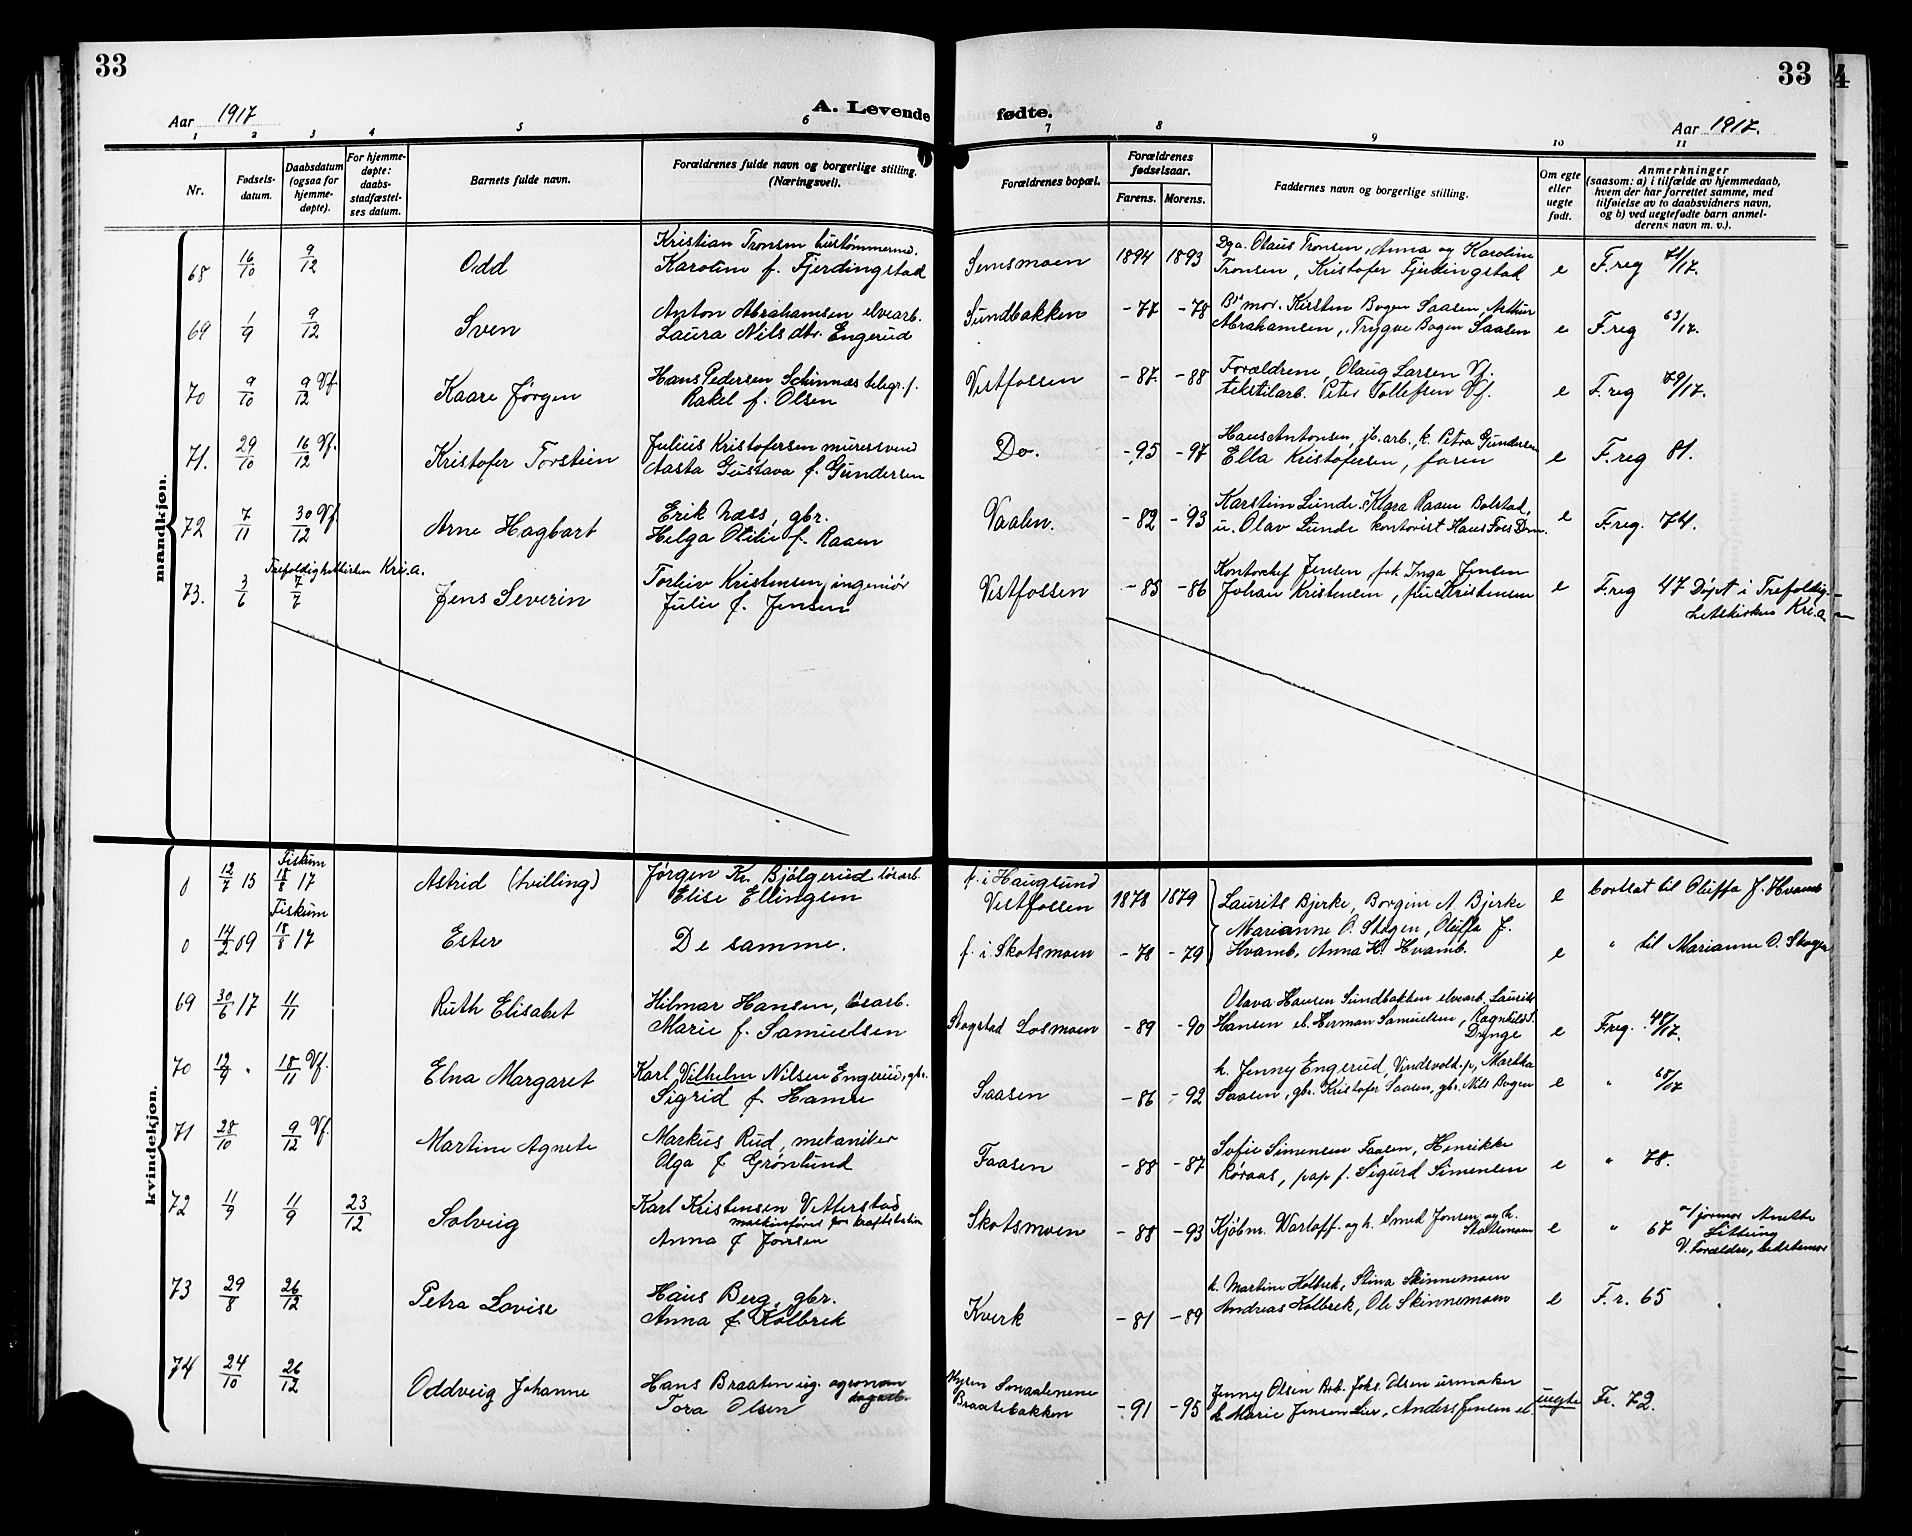 33
33
Aar 1917
A. Levende
fødte.
Aar 1917.
1 2 3 4 5 6 7 8 9 10 11
Nr.
Fødsels-
datum.
Daabsdatum
(ogsaa for
hjemme-
døpte).
For hjemme-
døpte:
daabs-
stadfæstel-
ses datum.
Barnets fulde navn.
Forældrenes fulde navn og borgerlige stilling.
(Næringsvei).
Forældrenes bopæl.
Forældrenes
fødselsaar.
Farens. Morens.
Faddernes navn og borgerlige stilling.
Om egte
eller
uegte
født.
Anmerkninger
(saasom: a) i tilfælde av hjemmedaab,
hvem der har forrettet samme, med
tilføielse av to daabsvidners navn,
og b) ved uegtefødte barn anmel-
derens navn m. v.).
mandkjøn.
68 16/10 9/12 Odd
Kristian Tronsen hustømmerm.
Karoline f. Fjerdingstad
Semsmoen 1894 1893
Dga. Olaus Tronsen, Anna og Karoline
Tronsen, Kristofer Fjerdingstad
e F. reg 71/17.
69 1/9 9/12 Sven
Anton Abrahamsen elvearb.
Laura Nilsdtr. Engerud
Sundbakken -77 -78
mor. Kirsten Bogen Saasen, Arthur
Abrahamsen, Trygve Bogen Saasen
e F. reg 63/17.
70 9/10 9/12 Vf. Kaare Jørgen
Hans Pedersen Schinnæs telegr. f.
Rakel f. Olsen
Vestfossen -87 -88
Forældrene, Olaug Larsen Vf.
tekstilarb. Peter Tollefsen Vf.
e F. reg 79/17.
71. 29/10 16/12 Vf. Kristofer Torstein
Julius Kristofersen murersvend
Aasta Gustava f. Gundersen
Do. -95 -97
Hans Antonsen, jb. arb. k. Petra Gundersen
Ella Kristofersen, faren
e F. reg 81.
72 7/11 30/12 Vf. Arne Hagbart
Erik Næss, gbr.
Helga Otilie f. Raaen
Vaalen. -82 -93
Karstein Lunde. Klara Raaen Bolstad,
u. Olav Lunde kontorist Hans Foss Drm.
e F. reg. 74.
73. 3/6 Trefoldighetskirken Kr.a. 7/7 Jens Severin
Torleiv Kristensen, ingeniør
Julie f. Jensen
Vestfossen -85 -86
Kontorchef Jensen, frk. Inga Jensen
Johan Kristensen, fru Kristensen
e F. reg 47 Døpt i Trefoldig-
hetskirken Kr.a.
kvindekjøn.
0 12/7 15 Fiskum 18/8 17 Astrid (tvilling)
Jørgen Kr. Bjølgerud løsarb.
Elise Ellingsen
f. i Hauglund
Vestfossen 1878 1879
Laurits Bjerke, Borgine A. Bjerke
e bortsat til Oluffa J. Hvamb
0 14/2 09 Fiskum 18/8 17 Ester
De samme.
f. i Skotsmoen -78 -79
Marianne O. Skogen, Oluffa J.
Hvamb, Anna K. Hvamb.
e " til Marianne O. Skogen
69 30/6 17 11/11 Ruth Elisabet
Hilmar Hansen, løsarb.
Marie f. Samuelsen
Skogstad Losmoen -89 -90
Olava Hansen Sundbakken elvearb. Laurits
Hansen el. Herman Samuelsen, Ragnhild S.
Dynge
e F. reg. 48/17.
70 12/9 " 18/11 Vf. Elna Margaret
Karl Vilhelm Nilsen Engerud, gbr.
Sigrid f. Hamre
Saasen -86 -92
k. Jenny Engerud, Vindsvold. p, Martha
Saasen, gbr. Kristofer Saasen, gbr. Nils Bogen
e " 68/17
71 28/10 9/12 Vf. Martine Agnete
Markus Rud, mekaniker
Olga f Grønlund
Faasen -88 -87
Sofie Simensen Faasen, Henrikke
Røraas, pap f. Sigurd Simensen
e " 78.
72 11/9 11/9 23/12 Solveig
Karl Kristensen Vetterstad
maskinfører for kraftstation
Anna f Jonsen
Skotsmoen -88 -93
Kjøbm. Warloff. og h. Smed Jonsen og h.
Skotsmoen
e " 67 v/ jormor Anette
V. Forældre, bedstemor
73 29/8 26/12 Petra Lovise
Hans Berg, gbr.
Anna f Kolbrek
Kverk -81 -89
k. Martine Kolbrek, Stina Skinnemoen
Andreas Kolbrek, Ole Skinnemoen
e F. r. 65
74 24/10 26/12 Oddveig Johanne
Hans Braaten ug. agronom
Tora Olsen
Smaalenene
Braatebakken -91 -95
Jenny Olsen Bob. Johs. Olsen urmaker
k. Marie Jensen Lier, Anders Jensen el.
uegte Fr. 72.